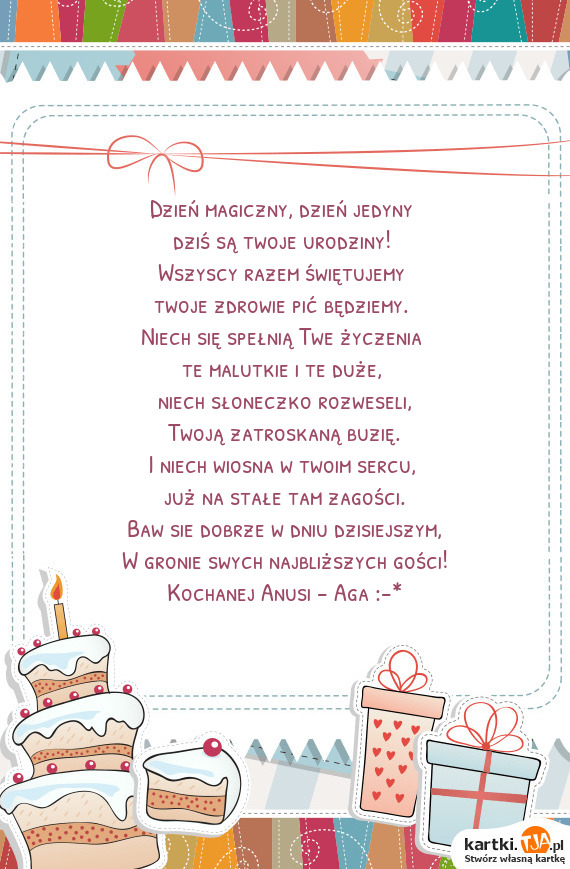 Dzień magiczny, dzień jedyny
dziś są twoje urodziny!
Wszyscy razem świętujemy
twoje zdrowie pić będziemy.
Niech się spełnią Twe życzenia
te malutkie i te duże,
niech słoneczko rozweseli,
Twoją zatroskaną buzię.
I niech wiosna w twoim sercu,
już na stałe tam zagości.
Baw sie dobrze w dniu dzisiejszym,
W gronie swych najbliższych gości!
Kochanej Anusi – Aga :-*
kartki.TJA.pl
Stwórz własną kartkę